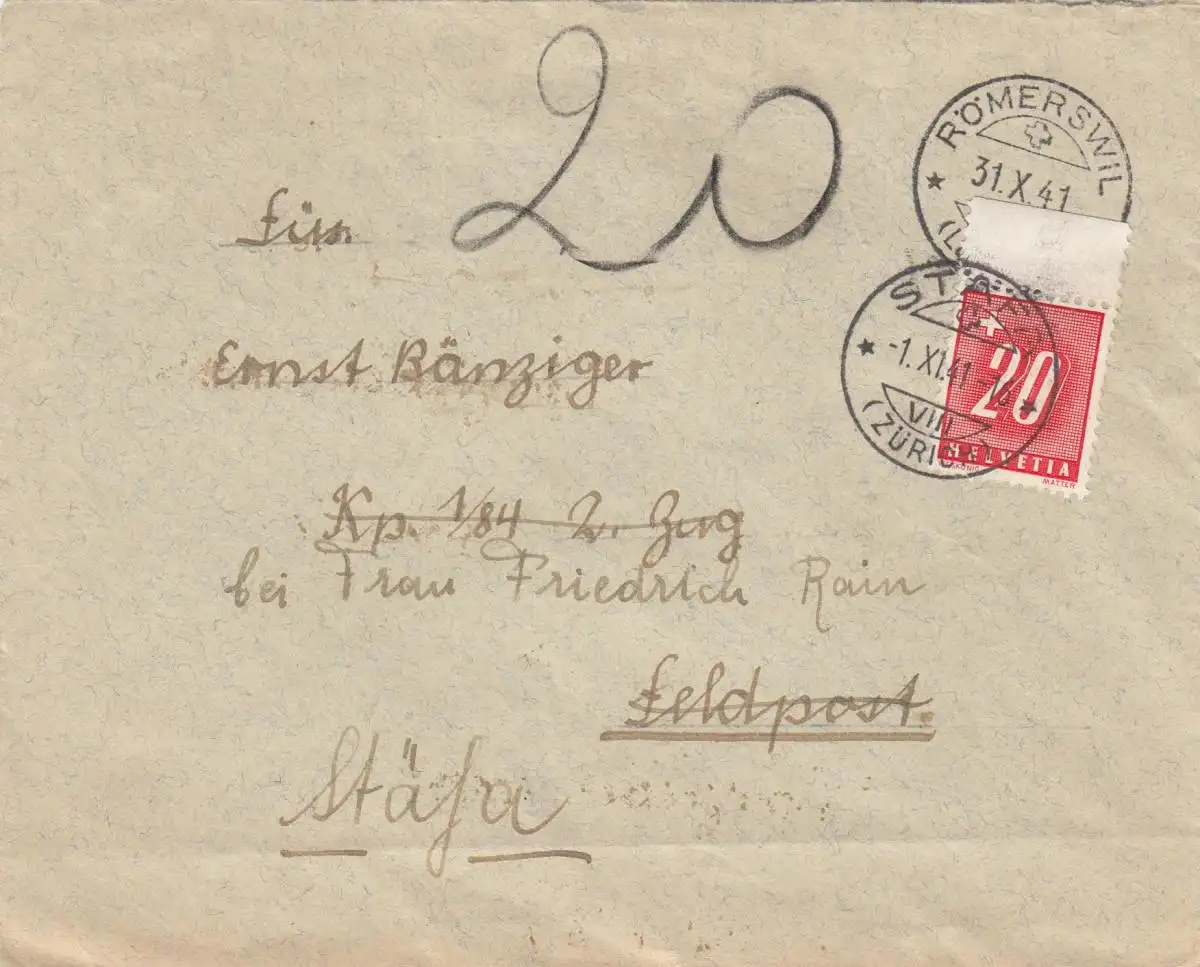 20
RÖMERSWIL
31.X.41
Für
STÄFA
-1.XI.41-
VIII
(ZÜRICH)
20
HELVETIA
MATTER
Ernst Bänziger
Kp. 1/84 2. Zug
bei Frau Friedrich Rain
Feldpost.
Stäfa